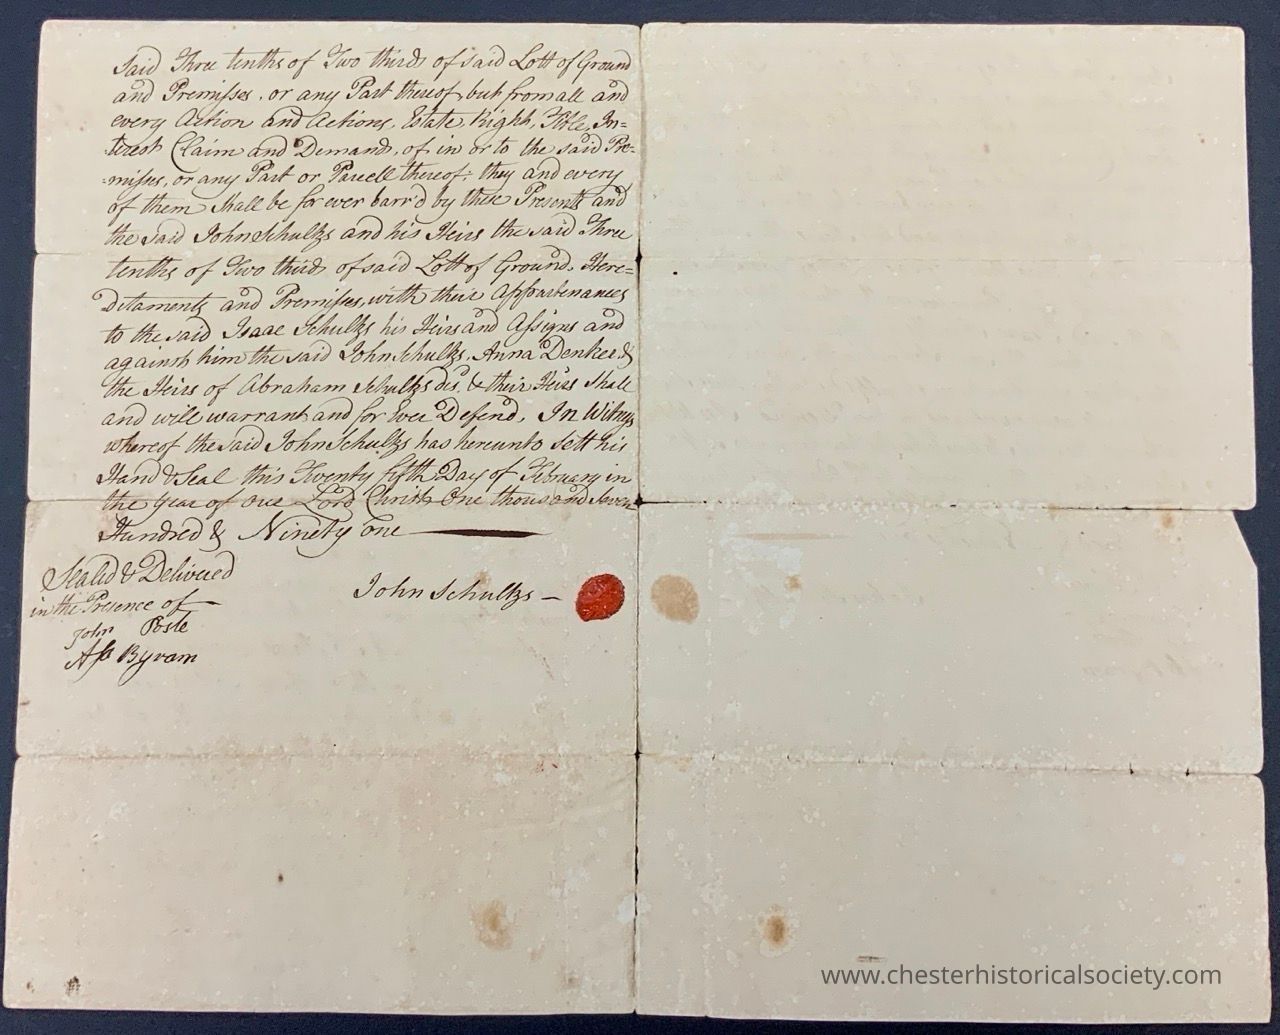 said Three tenths of Two thirds of said Lott of Ground
and Premisses, or any Part thereof, but from all and
every Action and Actions, Estate, Right, Title, In=
terest Claim and Demand, of in or to the said Pre-
-misses, or any Part or Parcell thereof: they and every
of them shall be for ever barr'd by these Presents and
the said John Schultzs and his Heirs the said Three
tenths of Two thirds of said Lott of Ground, Here=
Ditaments and Premisses, with their Appurtenances
to the said Isaac Schultzs his Heirs and Assigns and
against him the said John Schultzs, Anna Denker, &
the Heirs of Abraham Schultzs & their Heirs Shall
and will warrant and for Ever Defend, In Witness
whereof the said John Schultzs has hereunto sett his
Hand & Seal this Twenty fifth Day of February in
the Year of our Lord Christ One thousand Seven
Hundred & Ninety one
Sealed & Delivered
in the Presence of
John Schultzs
John Posle
Byram
www.chesterhistoricalsociety.com